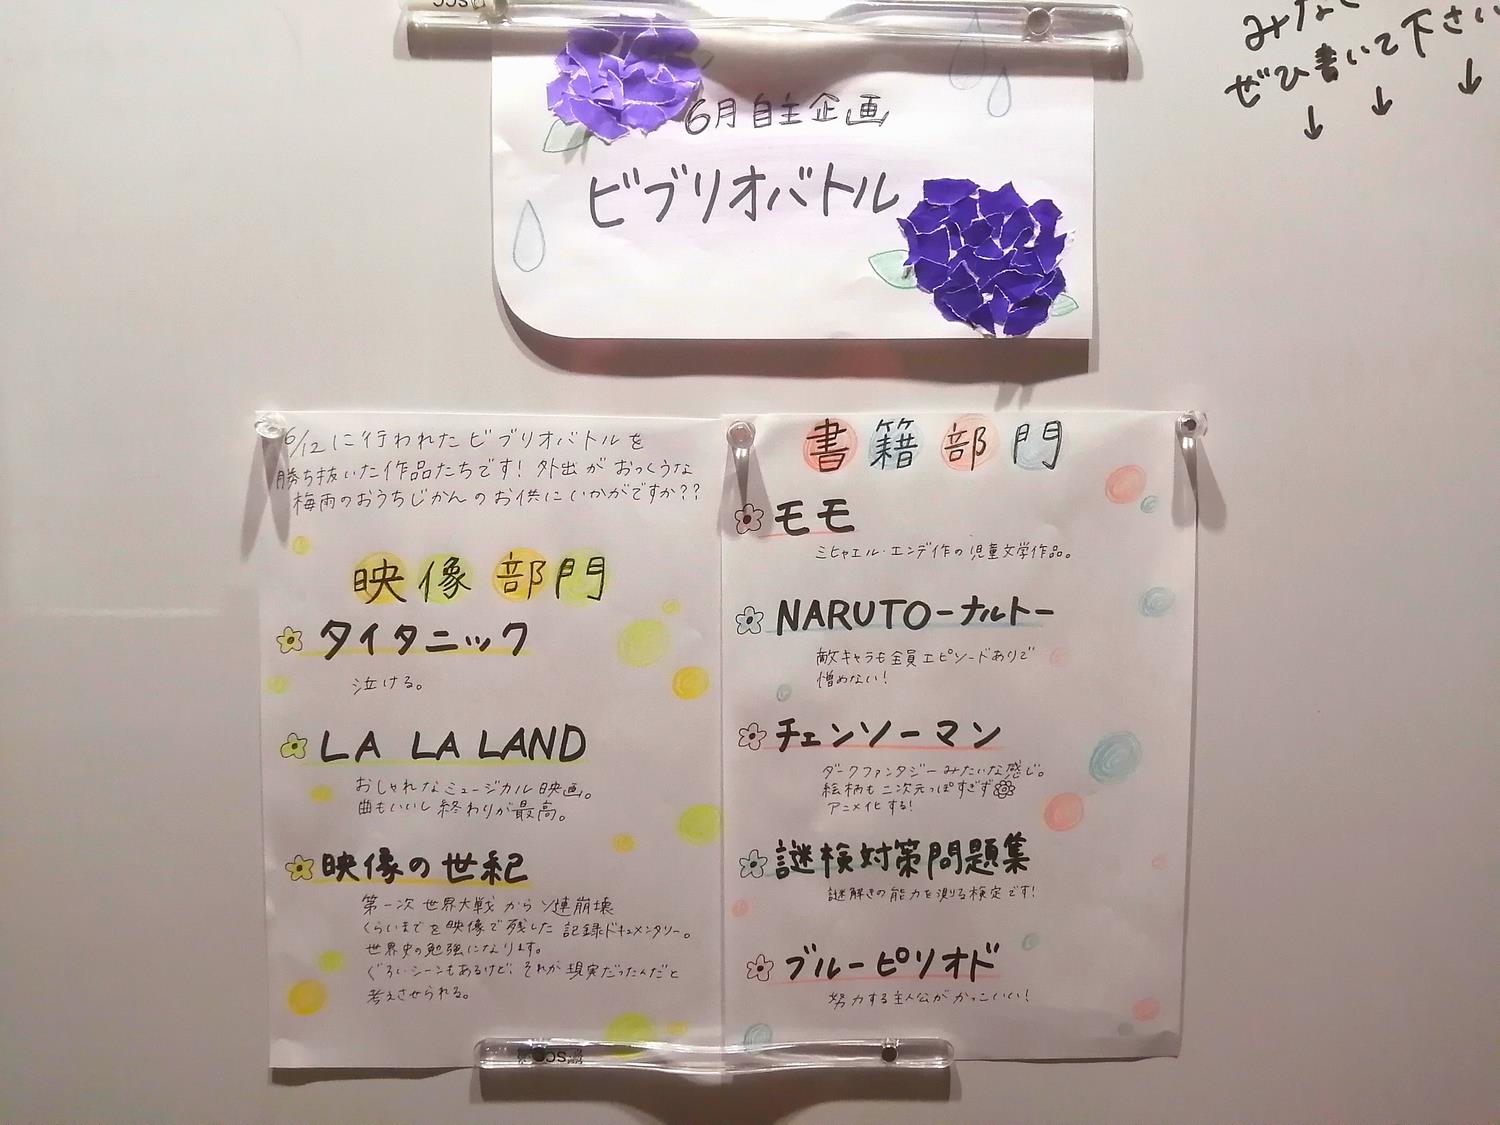 6月自主企画
ビブリオバトル
ぜひ書いて下さい
↓ ↓ ↓
6/12に行われたビブリオバトルを
勝ち抜いた作品たちです！外出がおっくうな
梅雨のおうちじかんのお供にいかがですか??
映像部門
タイタニック
泣ける。
LA LA LAND
おしゃれなミュージカル映画。
曲もいいし終わりが最高。
映像の世紀
第一次世界大戦からソ連崩壊
くらいまでを映像で残した記録ドキュメンタリー。
世界史の勉強になります。
ぐろいシーンもあるけど、それが現実だったんだと
考えさせられる。
書籍部門
モモ
ミヒャエル・エンデ作の児童文学作品。
NARUTOーナルトー
敵キャラも全員エピソードありで
憎めない！
チェンソーマン
ダークファンタジーみたいな感じ。
絵柄も二次元っぽすぎず
アニメ化する！
謎検対策問題集
謎解きの能力を測る検定です！
ブルーピリオド
努力する主人公がかっこいい！